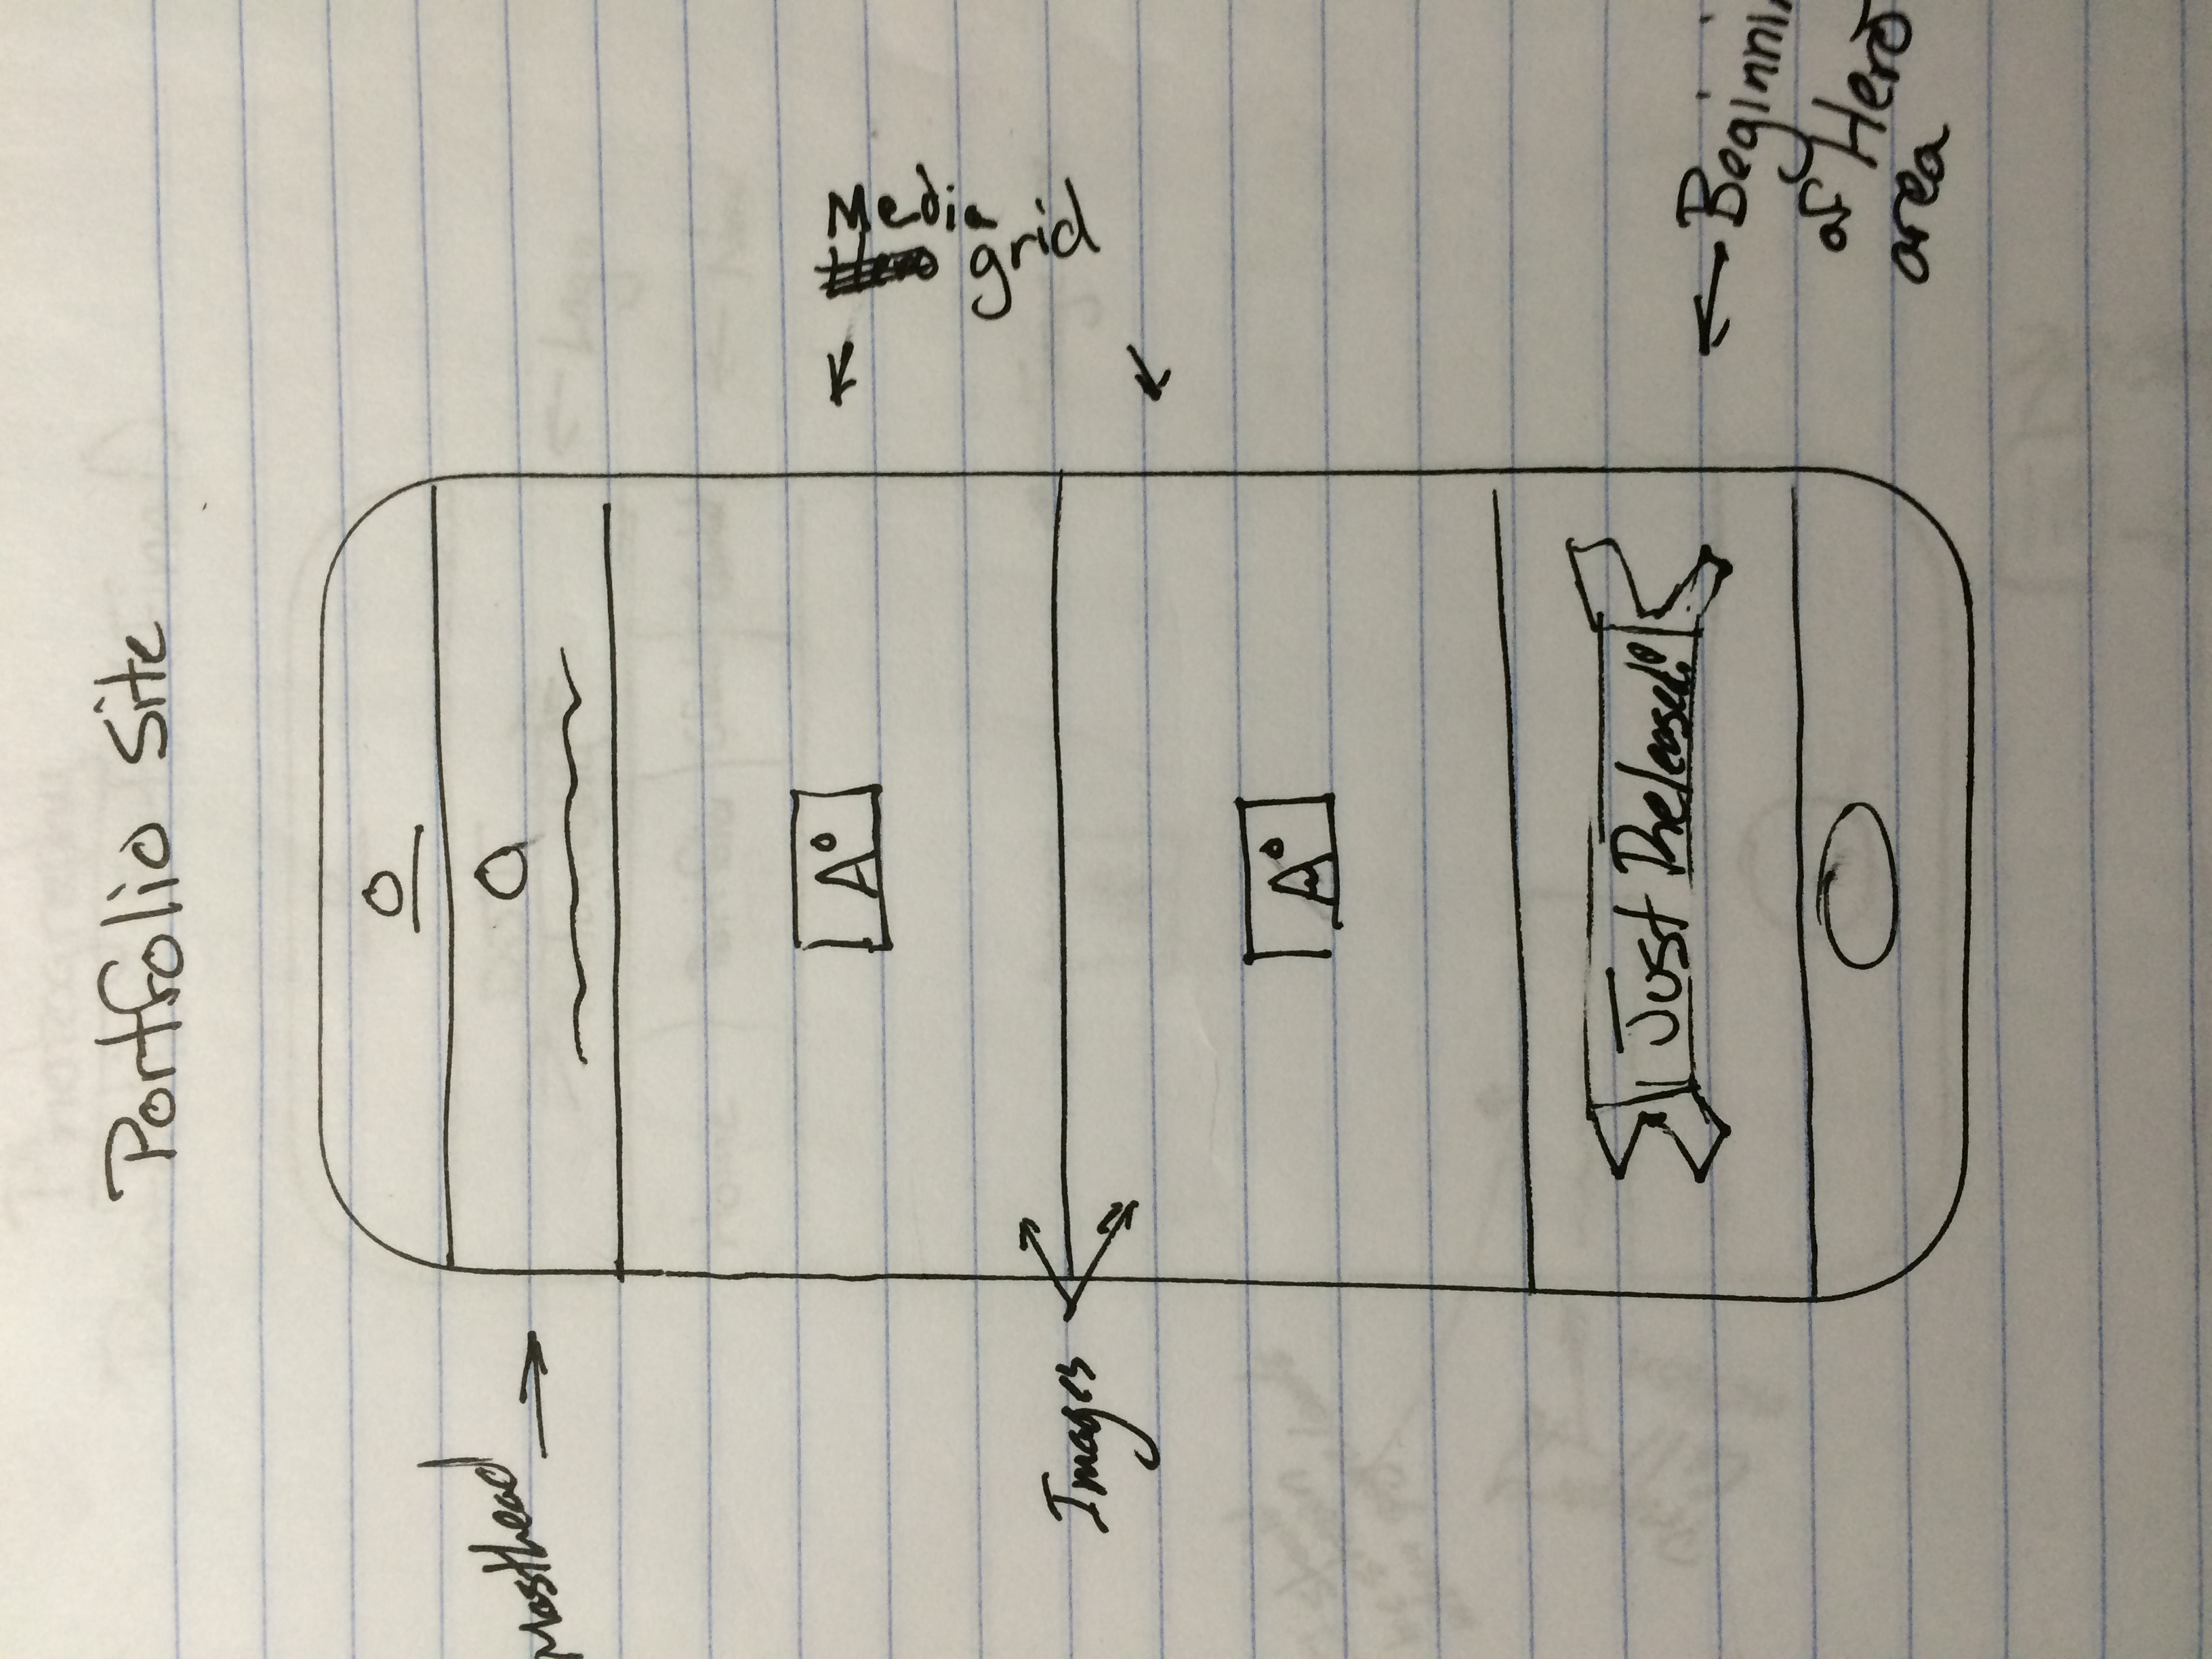 Portfolio Site
Masthead
A
Media
grid
Images
A
Just Released!
Beginnin
of Hero
area